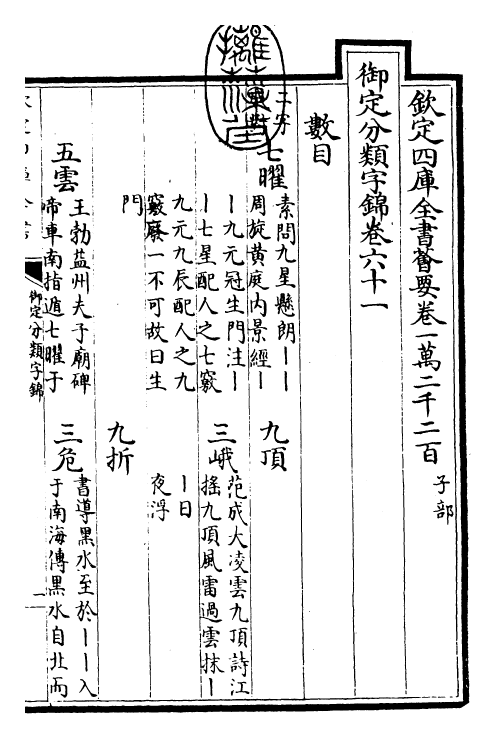 欽定四庫全書薈要卷一萬二千二百
子部
御定分類字錦卷六十一
數目
二字
七曜
素問九星懸朗〡〡
周旋黃庭內景經〡
〡九元冠生門注〡
〡七星配人之七竅
九元九辰配人之九
竅廢一不可故曰生
門
九頂
三峨
范成大凌雲九頂詩江
搖九頂風雷過雲抹〡
〡日
夜浮
五雲
王勃益州夫子廟碑
帝車南指遁七曜于
九折
三危
書導黑水至於〡〡入
于南海傳黑水自北而
御定分類字錦
一